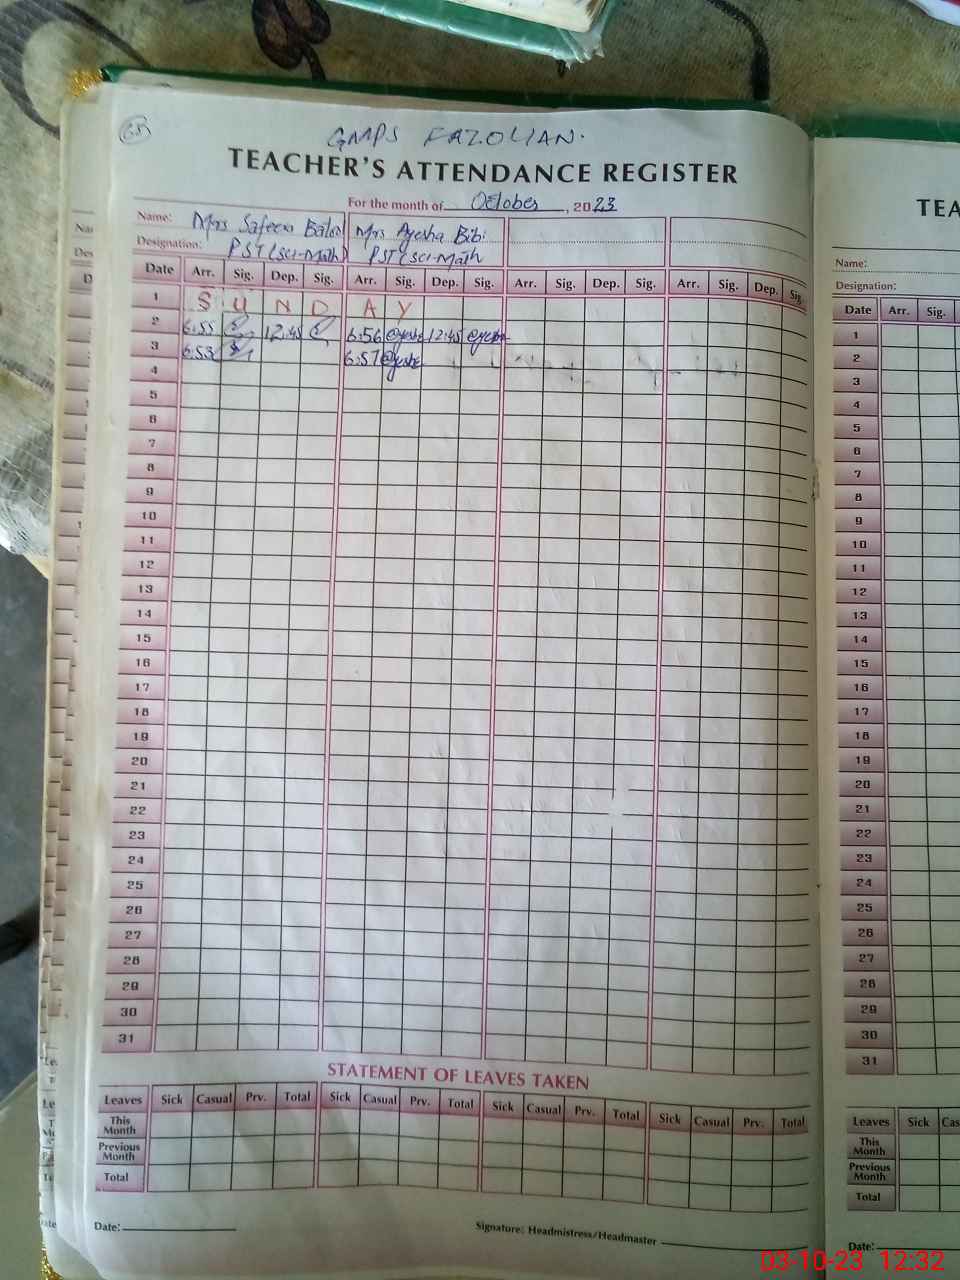 68
GMPS FAZOLIAN.
TEACHER'S ATTENDANCE REGISTER
For the month of October, 2023
Name: Mrs Safeena Mrs Ayesha Bibi
Designation: PST (Sci-Math) PST (Sci-Math
Date Arr. Sig. Dep. Sig. Arr. Sig. Dep. Sig. Arr. Sig. Dep. Sig. Arr. Sig. Dep. Sig.
1 S U N D A Y
2 6:55 12:45 6:56 Ayesha 12:45 Ayesha
3 6:53 6:57 Ayesha
4
5
6
7
8
9
10
11
12
13
14
15
16
17
18
19
20
21
22
23
24
25
26
27
28
29
30
31
STATEMENT OF LEAVES TAKEN
Leaves Sick Casual Prv. Total Sick Casual Prv. Total Sick Casual Prv. Total Sick Casual Prv. Total
This Month
Previous Month
Total
Date:
Signature: Headmistress/Headmaster
TEA
Name:
Designation:
Date Arr. Sig.
1
2
3
4
5
6
7
8
9
10
11
12
13
14
15
16
17
18
19
20
21
22
23
24
25
26
27
28
29
30
31
Leaves Sick Cas
This Month
Previous Month
Total
Date:
03-10-23 12:32